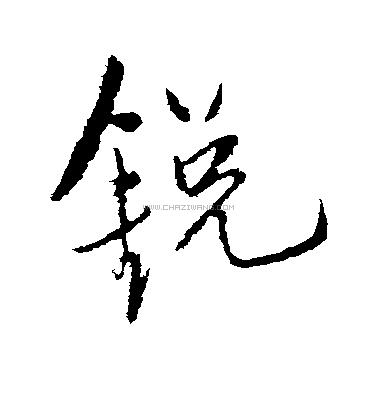 鋭
WWW.CHAZIWANG.COM